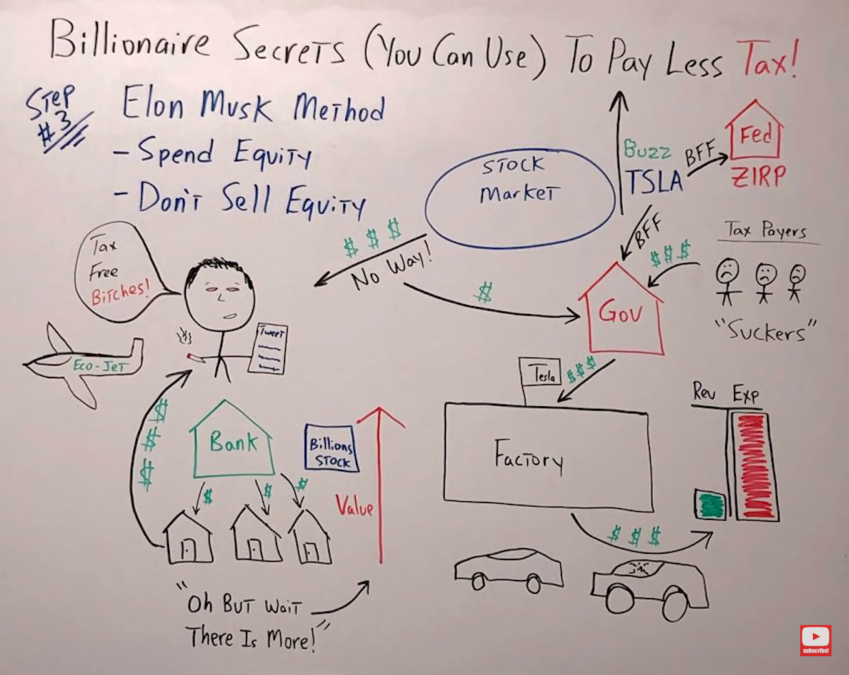 Billionaire Secrets (You Can Use) To Pay Less Tax!
Step #3
Elon Musk Method
- Spend Equity
- Don't Sell Equity
Stock Market
Buzz
TSLA
BFF
Fed
ZIRP
BFF
Tax Payers
$$$
"Suckers"
Gov
$$$
No Way!
$
Tax
Free
Bitches!
Tweet
Eco-Jet
Tesla
$$$
Factory
Rev Exp
$$$
$
$
$
Bank
$ $ $
Billions
Stock
Value
"Oh But Wait
There Is More!"
subscribe!